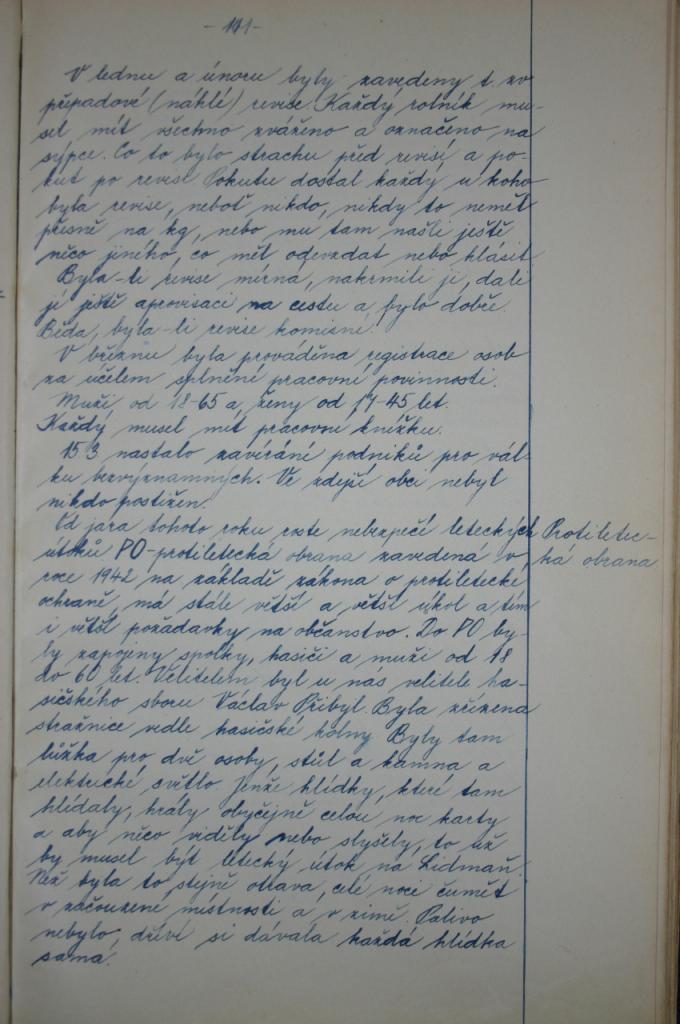 - 101 -
V lednu a únoru byly zavedeny t. zv.
přepadové (náhlé) revise. Každý rolník mu-
sel mít všechno zváženo a označeno na
sýpce. Co to bylo strachu před revisí a po-
kut po revisi. Pokutu dostal každý u koho
byla revise, neboť nikdo, nikdy to neměl
přesně na kg, nebo mu tam našli ještě
něco jiného, co měl odevzdat nebo hlásit.
Byla-li revise mírná, nakrmili ji, dali
jí ještě aprovisaci na cestu a bylo dobře.
Běda, byla-li revise komisní!
V březnu byla prováděna registrace osob
za účelem splnění pracovní povinnosti.
Muži od 18-65 a ženy od 17-45 let.
Každý musel mít pracovní knížku.
15 3 nastalo zavírání podniků pro vál-
ku bezvýznamných. Ve zdejší obci nebyl
nikdo postižen.
Od jara tohoto roku roste nebezpečí leteckých
útoků PO-protiletecká obrana zavedená v
roce 1942 na základě zákona o protiletecké
ochraně, má stále větší a větší úkol a tím
i větší požadavky na občanstvo. Do PO by-
ly zapojeny spolky, hasiči a muži od 18
do 60 let. Velitelem byl u nas velitele ha-
sičského sboru Václav Přibyl. Byla zřízena
strážnice vedle hasičské kólny. Byly tam
lůžka pro dvě osoby, stůl a kamna a
elektrické světlo. Jenže hlídky, které tam
hlídaly, hrály obyčejně celou noc karty
a aby něco viděly nebo slyšely, to už
by musel být letecký útok na Lidmaň.
Než byla to stejně otrava, celé noci čumět
v začouzené místnosti a v zimě. Palivo
nebylo, dříví si dávala každá hlídka
sama.
Protiletec-
ká obrana